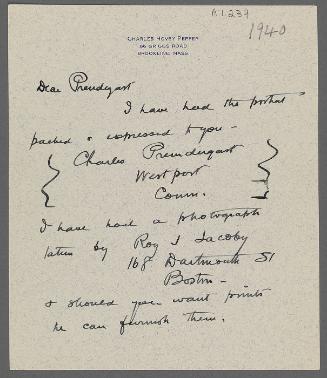 A1.239
1940
CHARLES HOVEY PEPPER
66 GRIGGS ROAD
BROOKLINE, MASS
Dear Prendergast
I have had the portrait
packed & expressed to you -
Charles Prendergast
Westport
Conn.
I have had a photograph
taken by Roy I Jacoby
168 Dartmouth St
Boston -
& should you want prints
he can furnish them.